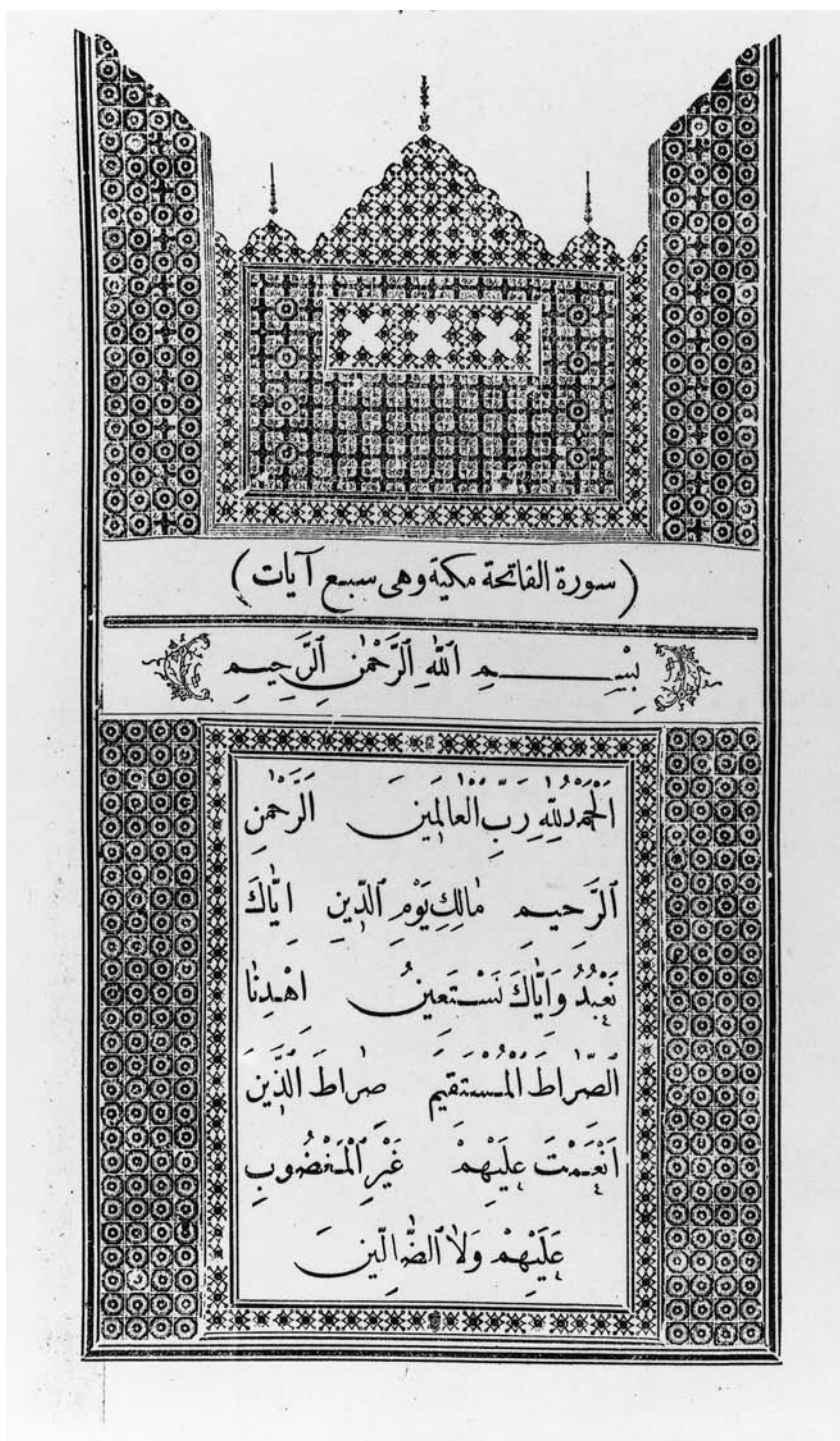 (سورة الفاتحة مكية وهى سبع آيات)
بِسْمِ ٱللّٰهِ ٱلرَّحْمٰنِ ٱلرَّحِيمِ
اَلْحَمْدُ لِلّٰهِ رَبِّ ٱلْعَالَمِينَ اَلرَّحْمٰنِ
ٱلرَّحِيمِ مٰالِكِ يَوْمِ ٱلدِّينِ اِيَّاكَ
نَعْبُدُ وَاِيَّاكَ نَسْتَعِينُ اِهْدِنٰا
ٱلصِّرٰاطَ ٱلْمُسْتَقِيمَ صِرٰاطَ ٱلَّذِينَ
اَنْعَمْتَ عَلَيْهِمْ غَيْرِ ٱلْمَغْضُوبِ
عَلَيْهِمْ وَلٰا ٱلضَّالِّينَ